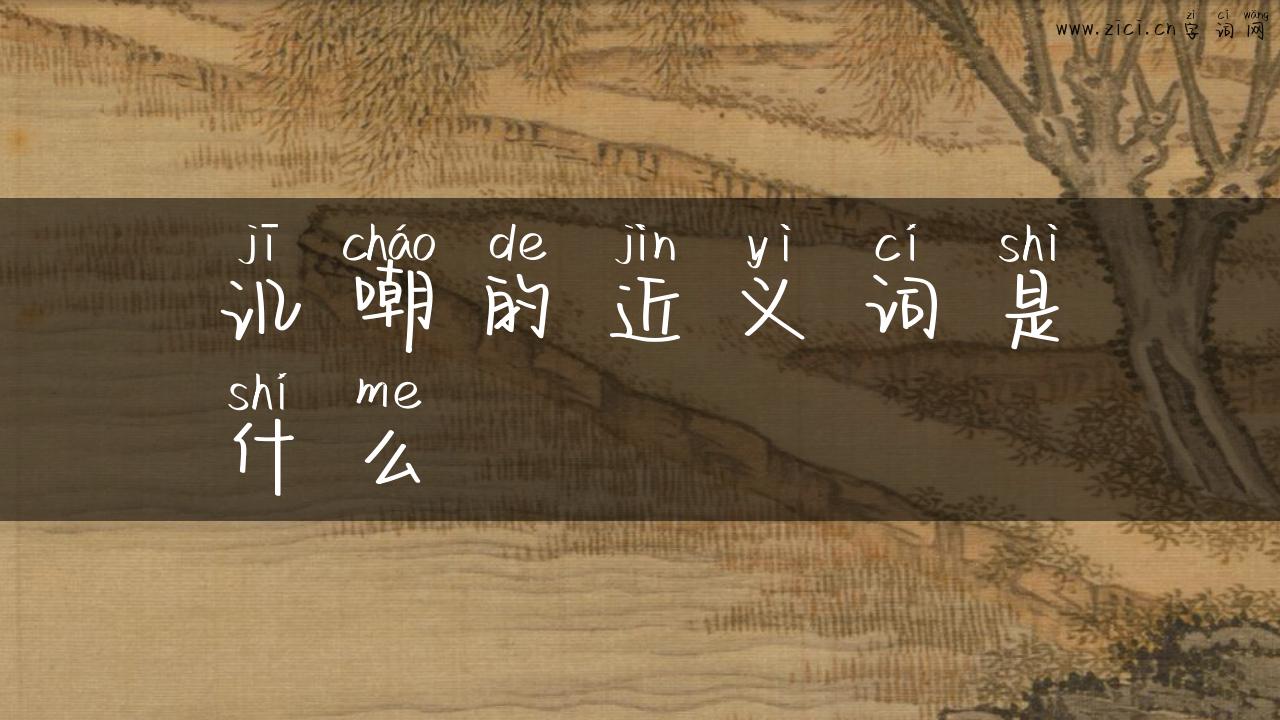 zì cí wǎng
www.zici.cn字词网
jī cháo de jìn yì cí shì
讥嘲的近义词是
shí me
什么